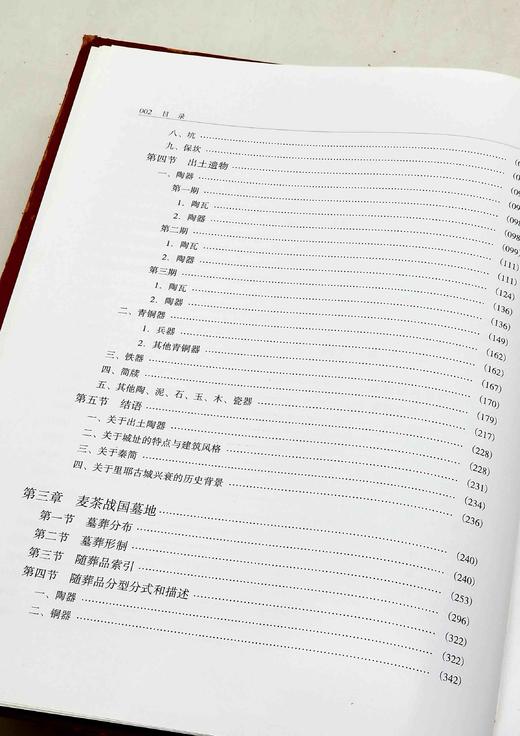 002 目 录
八、坑
九、保坎
第四节 出土遗物
一、陶器
第一期 (098
1. 陶瓦 (098
2. 陶器 (099)
第二期 (111)
1. 陶瓦 (111)
2. 陶器 (124)
第三期 (136)
1. 陶瓦 (136)
2. 陶器 (149)
二、青铜器 (162)
1. 兵器 (162)
2. 其他青铜器 (167)
三、铁器 (170)
四、简牍 (179)
五、其他陶、泥、石、玉、木、瓷器 (217)
第五节 结语 (228)
一、关于出土陶器 (228)
二、关于城址的特点与建筑风格 (231)
三、关于秦简 (234)
四、关于里耶古城兴衰的历史背景 (236)
第三章 麦茶战国墓地 (240)
第一节 墓葬分布 (240)
第二节 墓葬形制 (253)
第三节 随葬品索引 (296)
第四节 随葬品分型分式和描述 (322)
一、陶器 (322)
二、铜器 (342)